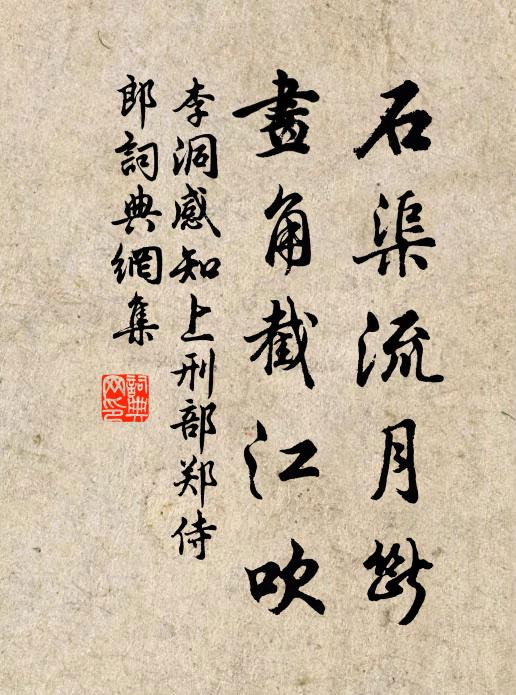 石渠流月斷
畫角截江吹
李洞感知上刑部郑侍
郎詞典網集
詞典网印